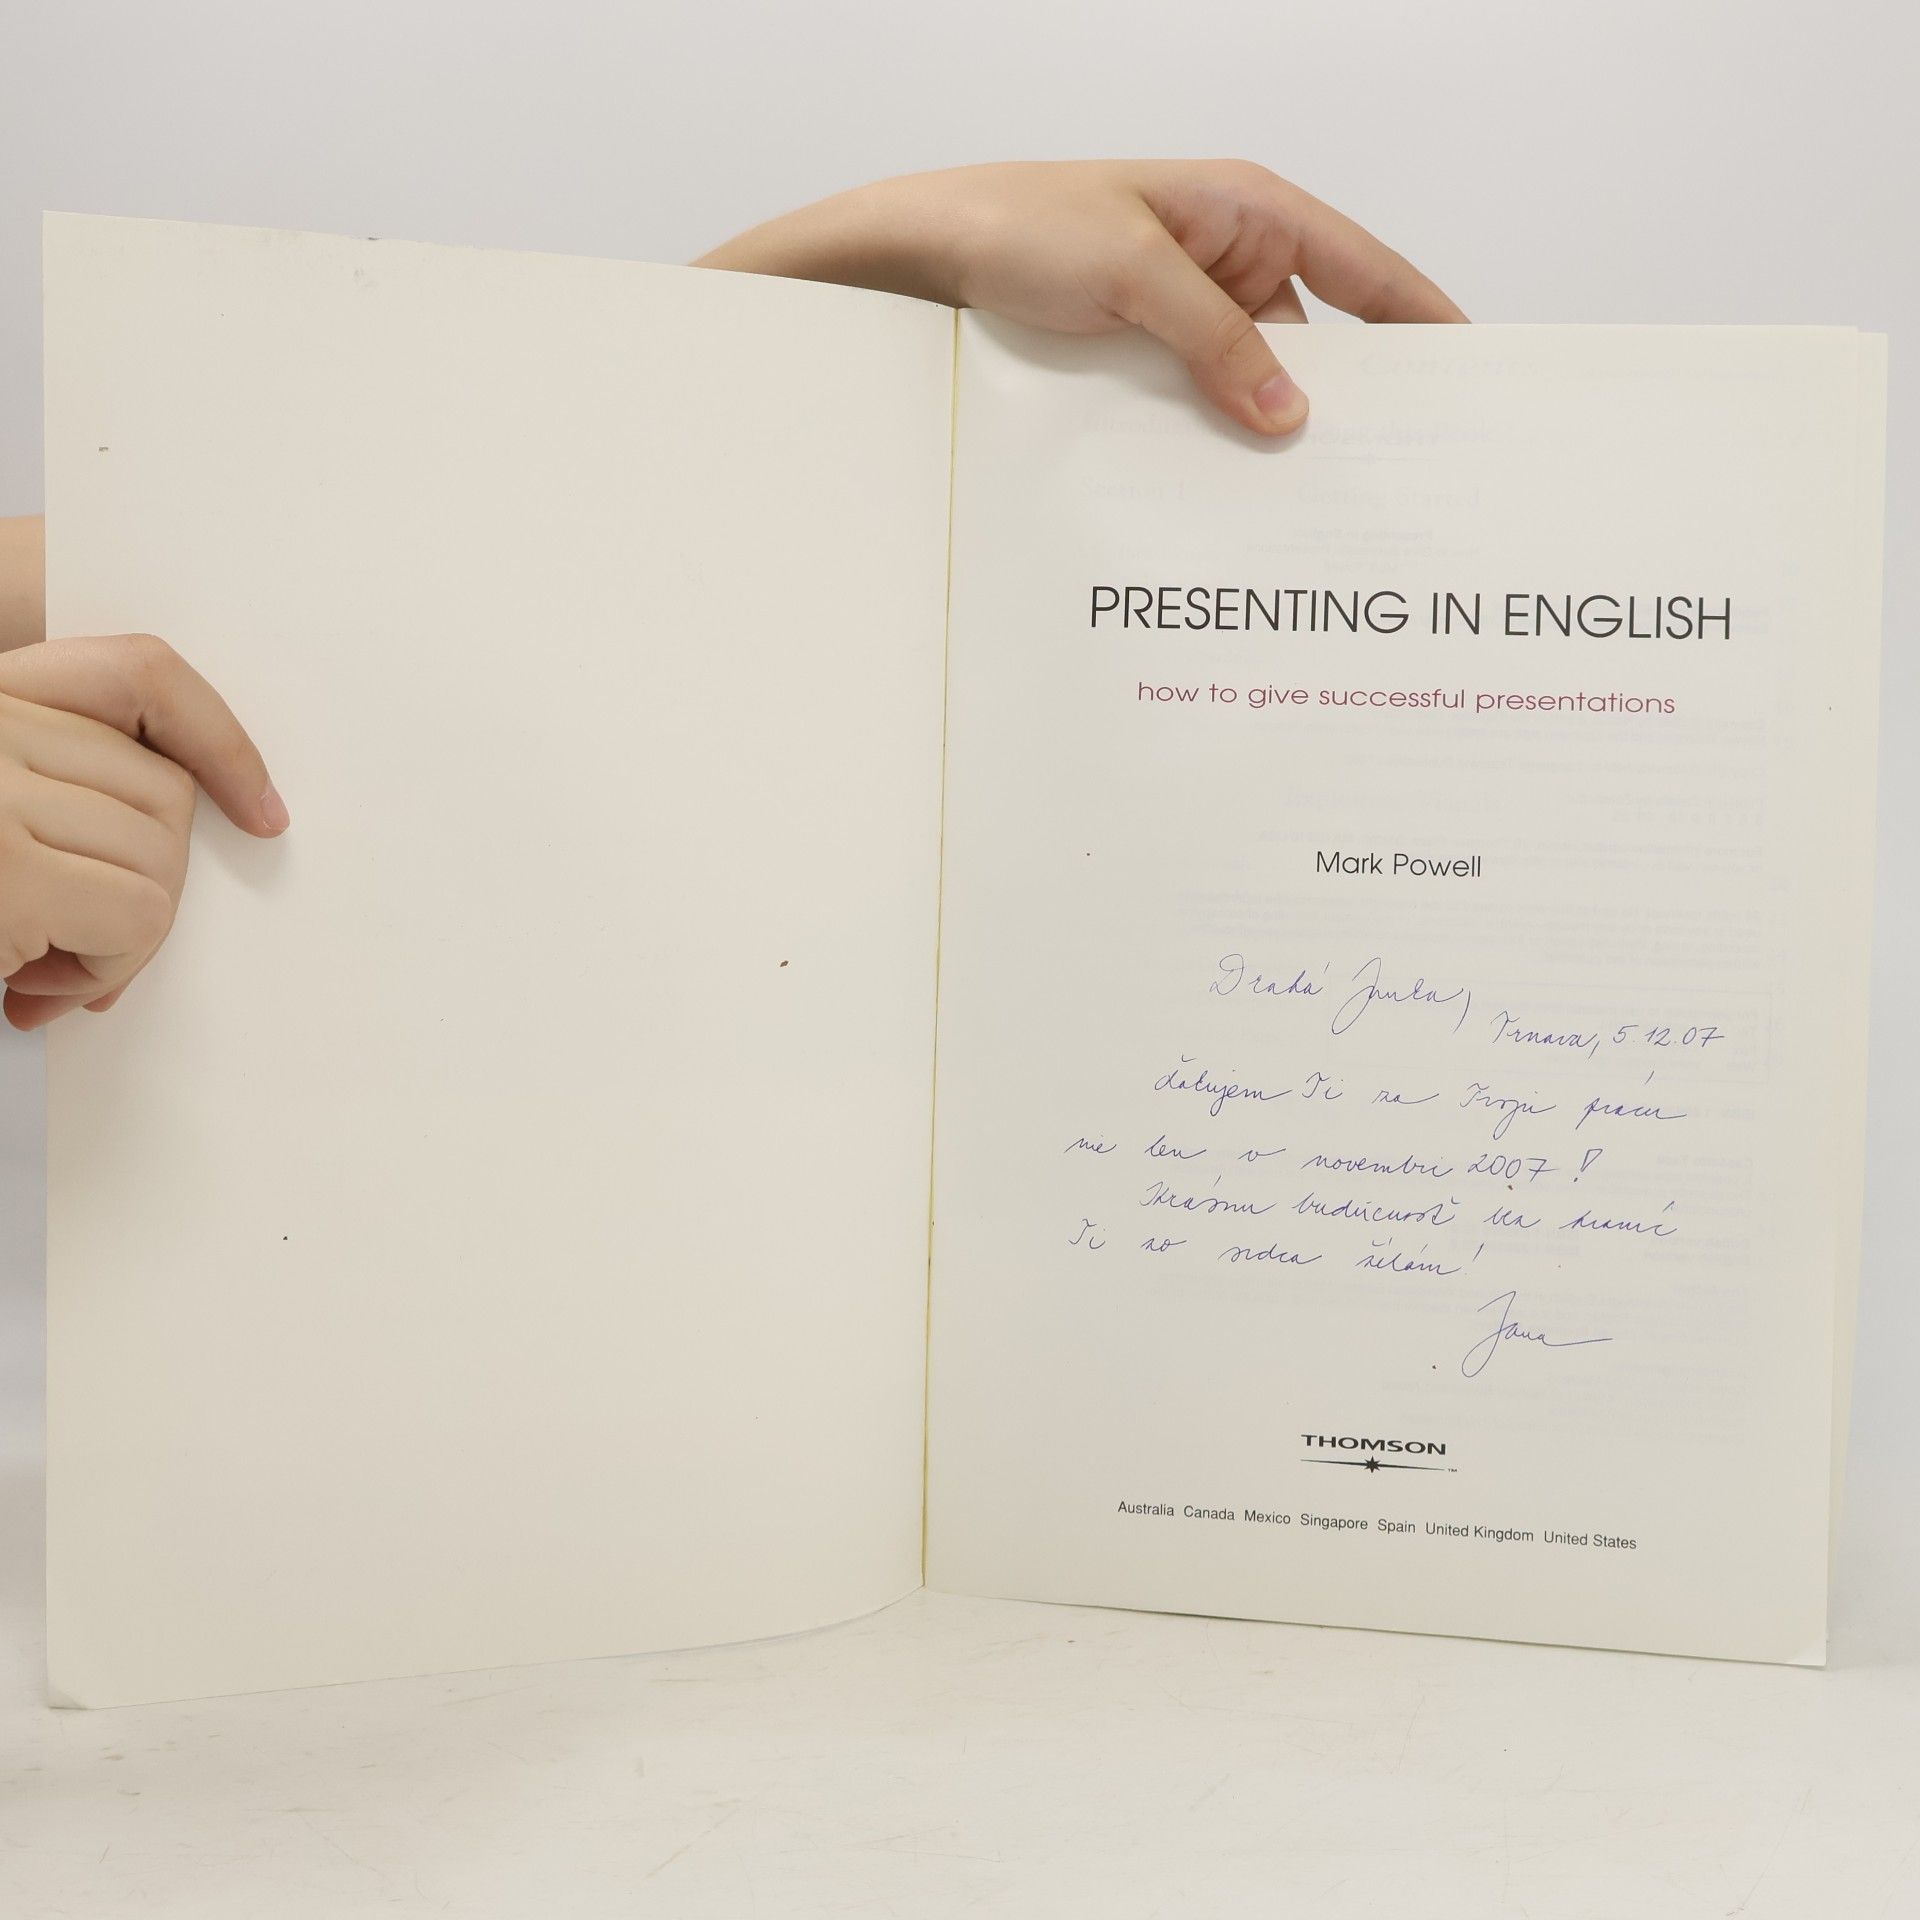 PRESENTING IN ENGLISH
how to give successful presentations
Mark Powell
Drahá Janka,
Trnava, 5.12.07
ďakujem Ti za Tvoju prácu
nie len v novembri 2007!
Krásnu budúcnosť bez hraníc
Ti zo srdca želám!
Jana
THOMSON
Australia Canada Mexico Singapore Spain United Kingdom United States